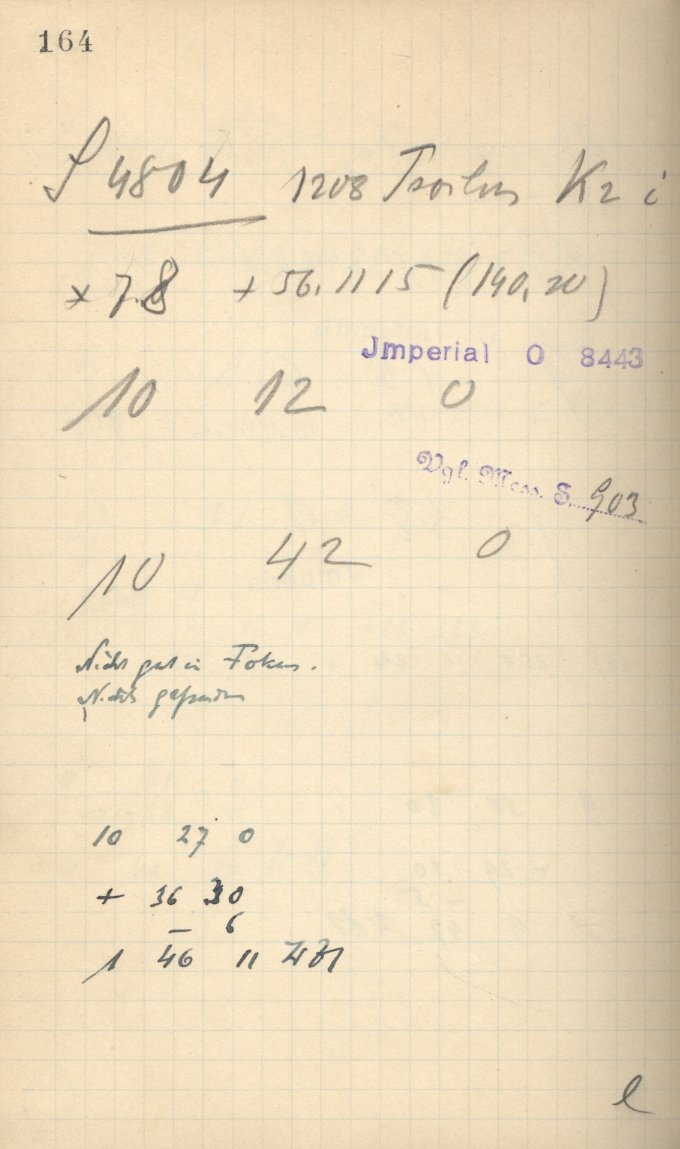 164
S 4804 1208 Troilus K2 i
+ 7.8 + 56. 11 15 (140, 20)
Jmperial O 8443
10 12 0
Vgl. Mess. S. 903
10 42 0
Nicht gut in Fokus.
Nichts gefunden
10 27 0
+ 36 30
– 6
1 46 11
l